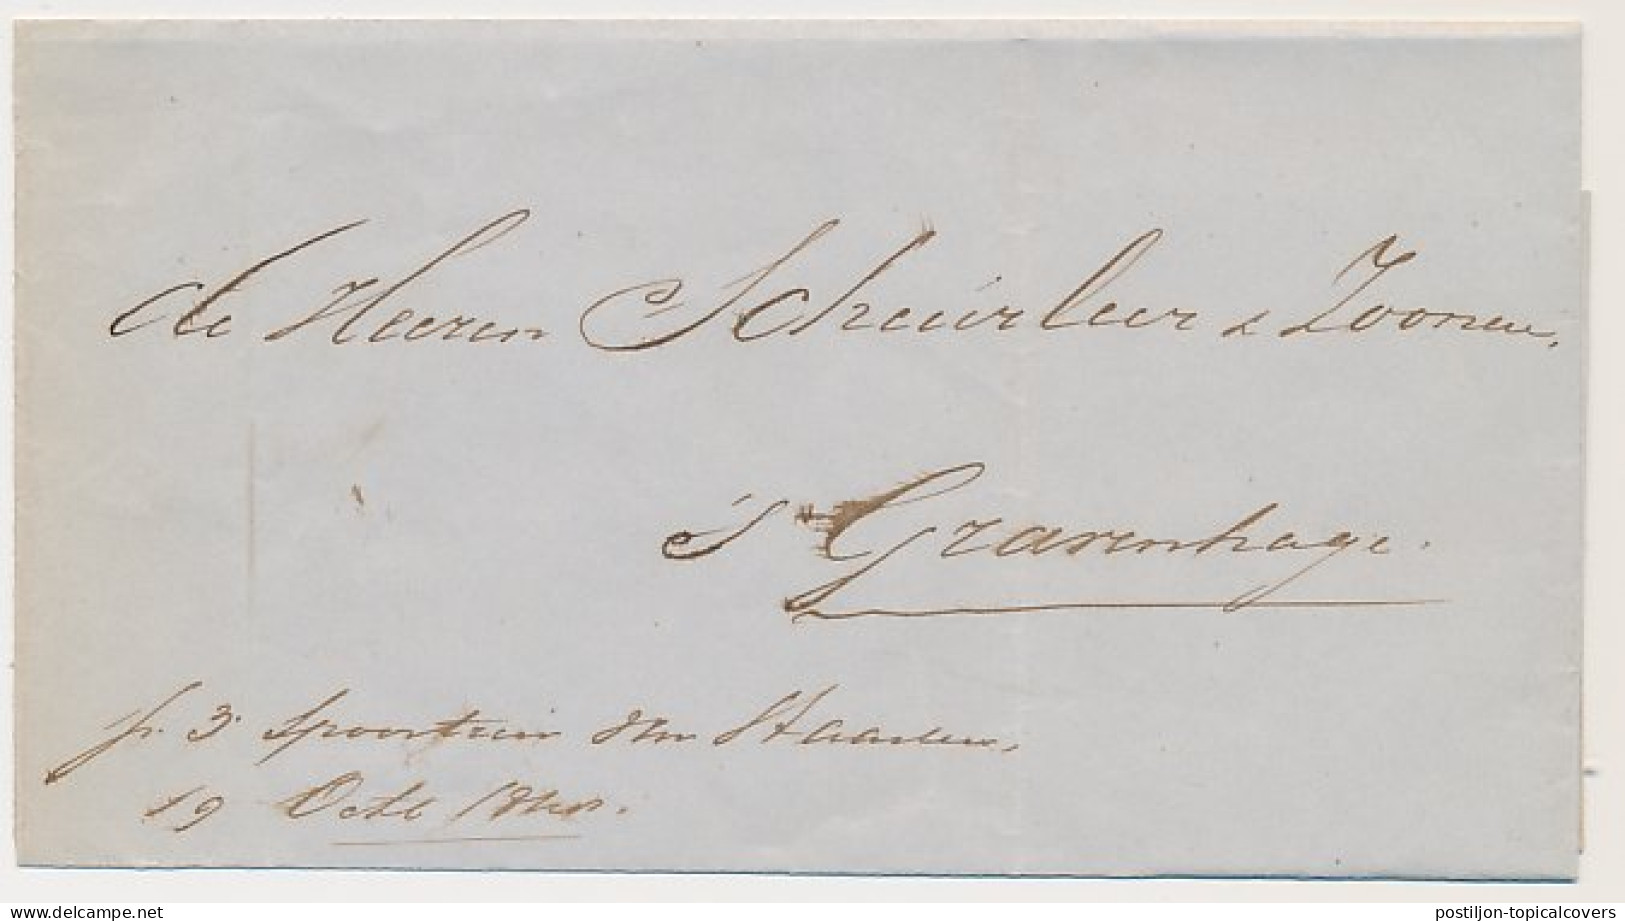 de Heeren Scheurleer & Zoonen,
's Gravenhage.
pr. 3e Spoortrein van Haarlem,
19 Octb
postiljon-topicalcovers